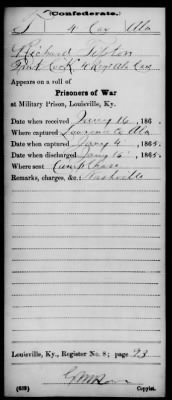 (Confederate.)
T 4 Cav Ala
Richard Tipton
4 Regt Ala Cav
Appears on a roll of
Prisoners of War
at Military Prison, Louisville, Ky.
Date when received Jany 16, 186
Where captured Lawrence Co Ala
Date when captured Jany 4, 1865.
Date when discharged Jany 15, 1865.
Where sent Camp Chase
Remarks, charges, &c. Nashville
Louisville, Ky., Register No. 8; page 93
(639) Copyist.